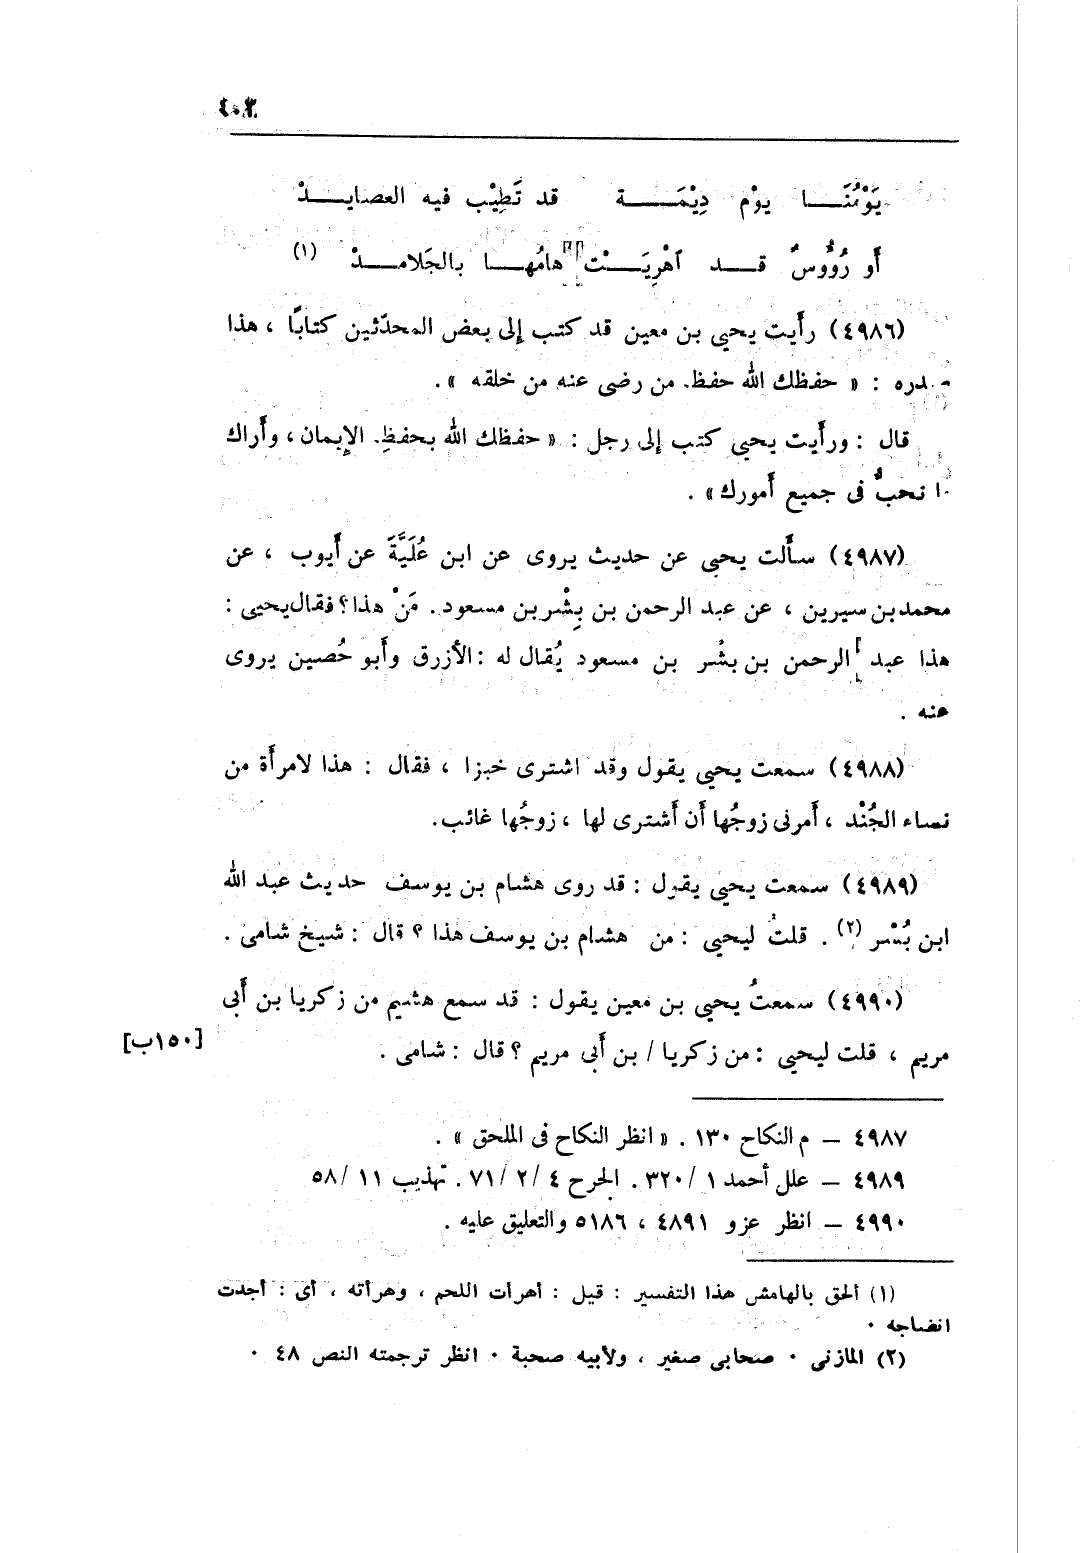 ٤٠٢
يَوْمُنَـــا يوْم دِيْمَـــــة قد تَطِيْب فيه العصايـــدْ
أَو رُؤُوسٌ قـــد آهْرِيَـــنْت هامُهـــا بالجَلامـــدْ (١)
(٤٩٨٦) رأَيت يحيى بن معين قد كتب إلى بعض المحدّثين كتابًا ، هذا
صدره : « حفظك الله حفظ من رضى عنه من خلقه » .
قال : ورأَيت يحيى كتب إلى رجل : « حفظك الله بحفظِ الإِيمان ، وأَراك
ما نحبُّ فى جميع أَمورك» .
(٤٩٨٧) سأَلت يحيى عن حديث يروى عن ابن عُلَيَّةَ عن أَيوب ، عن
محمد بن سيرين ، عن عبد الرحمن بن بِشْر بن مسعود . مَنْ هذا ؟ فقال يحيى :
هذا عبد الرحمن بن بشْر بن مسعود يُقال له : الأَزرق وأَبو حُصين يروى
عنه .
(٤٩٨٨) سمعت يحيى يقول وقد اشترى خبزا ، فقال : هذا لامرأَة من
نساء الجُنْد ، أَمرنى زوجُها أَن أَشترى لها ، زوجُها غائب.
(٤٩٨٩) سمعت يحيى يقول : قد روى هشام بن يوسف حديث عبد الله
ابن بُسْر (٢) . قلتُ ليحيى : من هشام بن يوسف هذا ؟ قال : شيخ شامى .
(٤٩٩٠) سمعتُ يحيى بن معين يقول : قد سمع هشيم من زكريا بن أَبى
مريم ، قلت ليحيى : من زكريا / بن أَبى مريم ؟ قال : شامى . [١٥٠ب]
٤٩٨٧ – م النكاح ١٣٠ . « انظر النكاح فى الملحق » .
٤٩٨٩ – علل أحمد ١ /٣٢٠ . الجرح ٤ /٢ /٧١ . تهذيب ١١ /٥٨
٤٩٩٠ – انظر عزو ٤٨٩١ ، ٥١٨٦ والتعليق عليه .
(١) ألحق بالهامش هذا التفسير : قيل : أهرأت اللحم ، وهرأته ، أى : أجدت
انضاجه ٠
(٢) المازنى ٠ صحابى صغير ، ولأبيه صحبة ٠ انظر ترجمته النص ٤٨ ٠